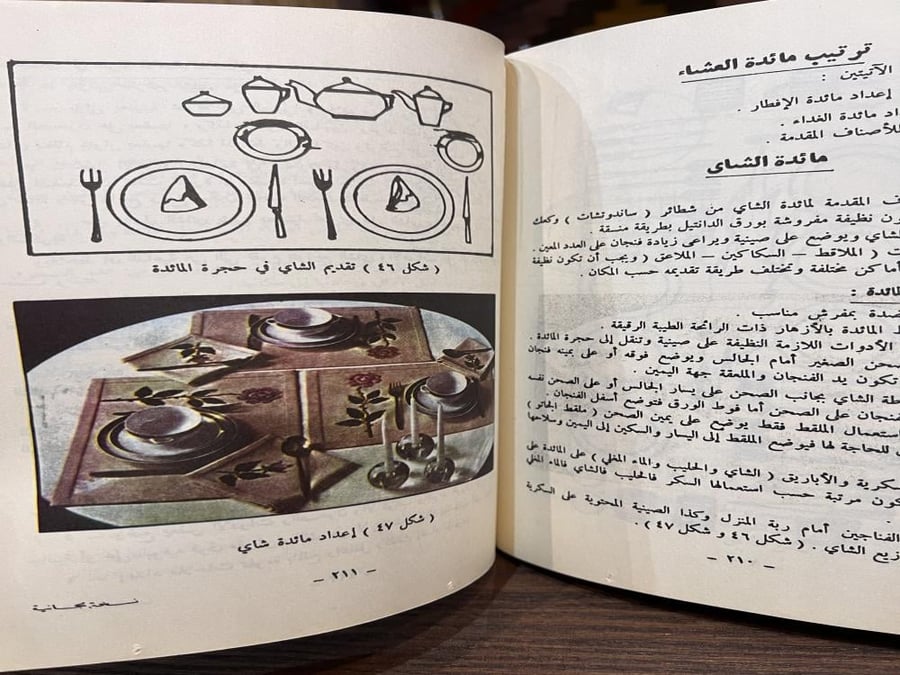 ترتيب مائدة العشاء
الآتيتين :
إعداد مائدة الإفطار .
مائدة الغداء .
للأصناف المقدمة .
مائدة الشاى
المقدمة لمائدة الشاي من شطائر ( ساندوتشات ) وكعك
نظيفة مفروشة بورق الدانتيل بطريقة منسقة .
الشاي ويوضع على صينية ويراعى زيادة فنجان على العدد المعين .
( الملاقط — السكاكين — الملاعق ) ويجب أن تكون نظيفة
أماكن مختلفة وتختلف طريقة تقديمه حسب المكان .
بمفرش مناسب .
المائدة بالأزهار ذات الرائحة الطيبة الرقيقة .
الأدوات اللازمة النظيفة على صينية وتنقل إلى حجرة المائدة .
الصغير أمام الجالس ويوضع فوقه أو على يمينه فنجان
تكون يد الفنجان والملعقة جهة اليمين .
الشاي بجانب الصحن على يسار الجالس أو على الصحن نفسه
على الصحن أما فوط الورق فتوضع أسفل الفنجان .
استعمال الملقط فقط يوضع على يمين الصحن ( ملقط الجاتو )
للحاجة لها فيوضع الملقط إلى اليسار والسكين إلى اليمين وسلاحها
والأباريق ( الشاي والحليب والماء المغلي ) على المائدة على
مرتبة حسب استعمالها السكر فالحليب فالشاي فالماء المغلي
الفناجين أمام ربة المنزل وكذا الصينية المحتوية على السكرية
الشاي . ( شكل ٤٦ و شكل ٤٧ ) .
— ٢١٠ —
( شكل ٤٦ ) تقديم الشاي في حجرة المائدة
( شكل ٤٧ ) إعداد مائدة شاي
— ٢١١ —
نسخة مجانية